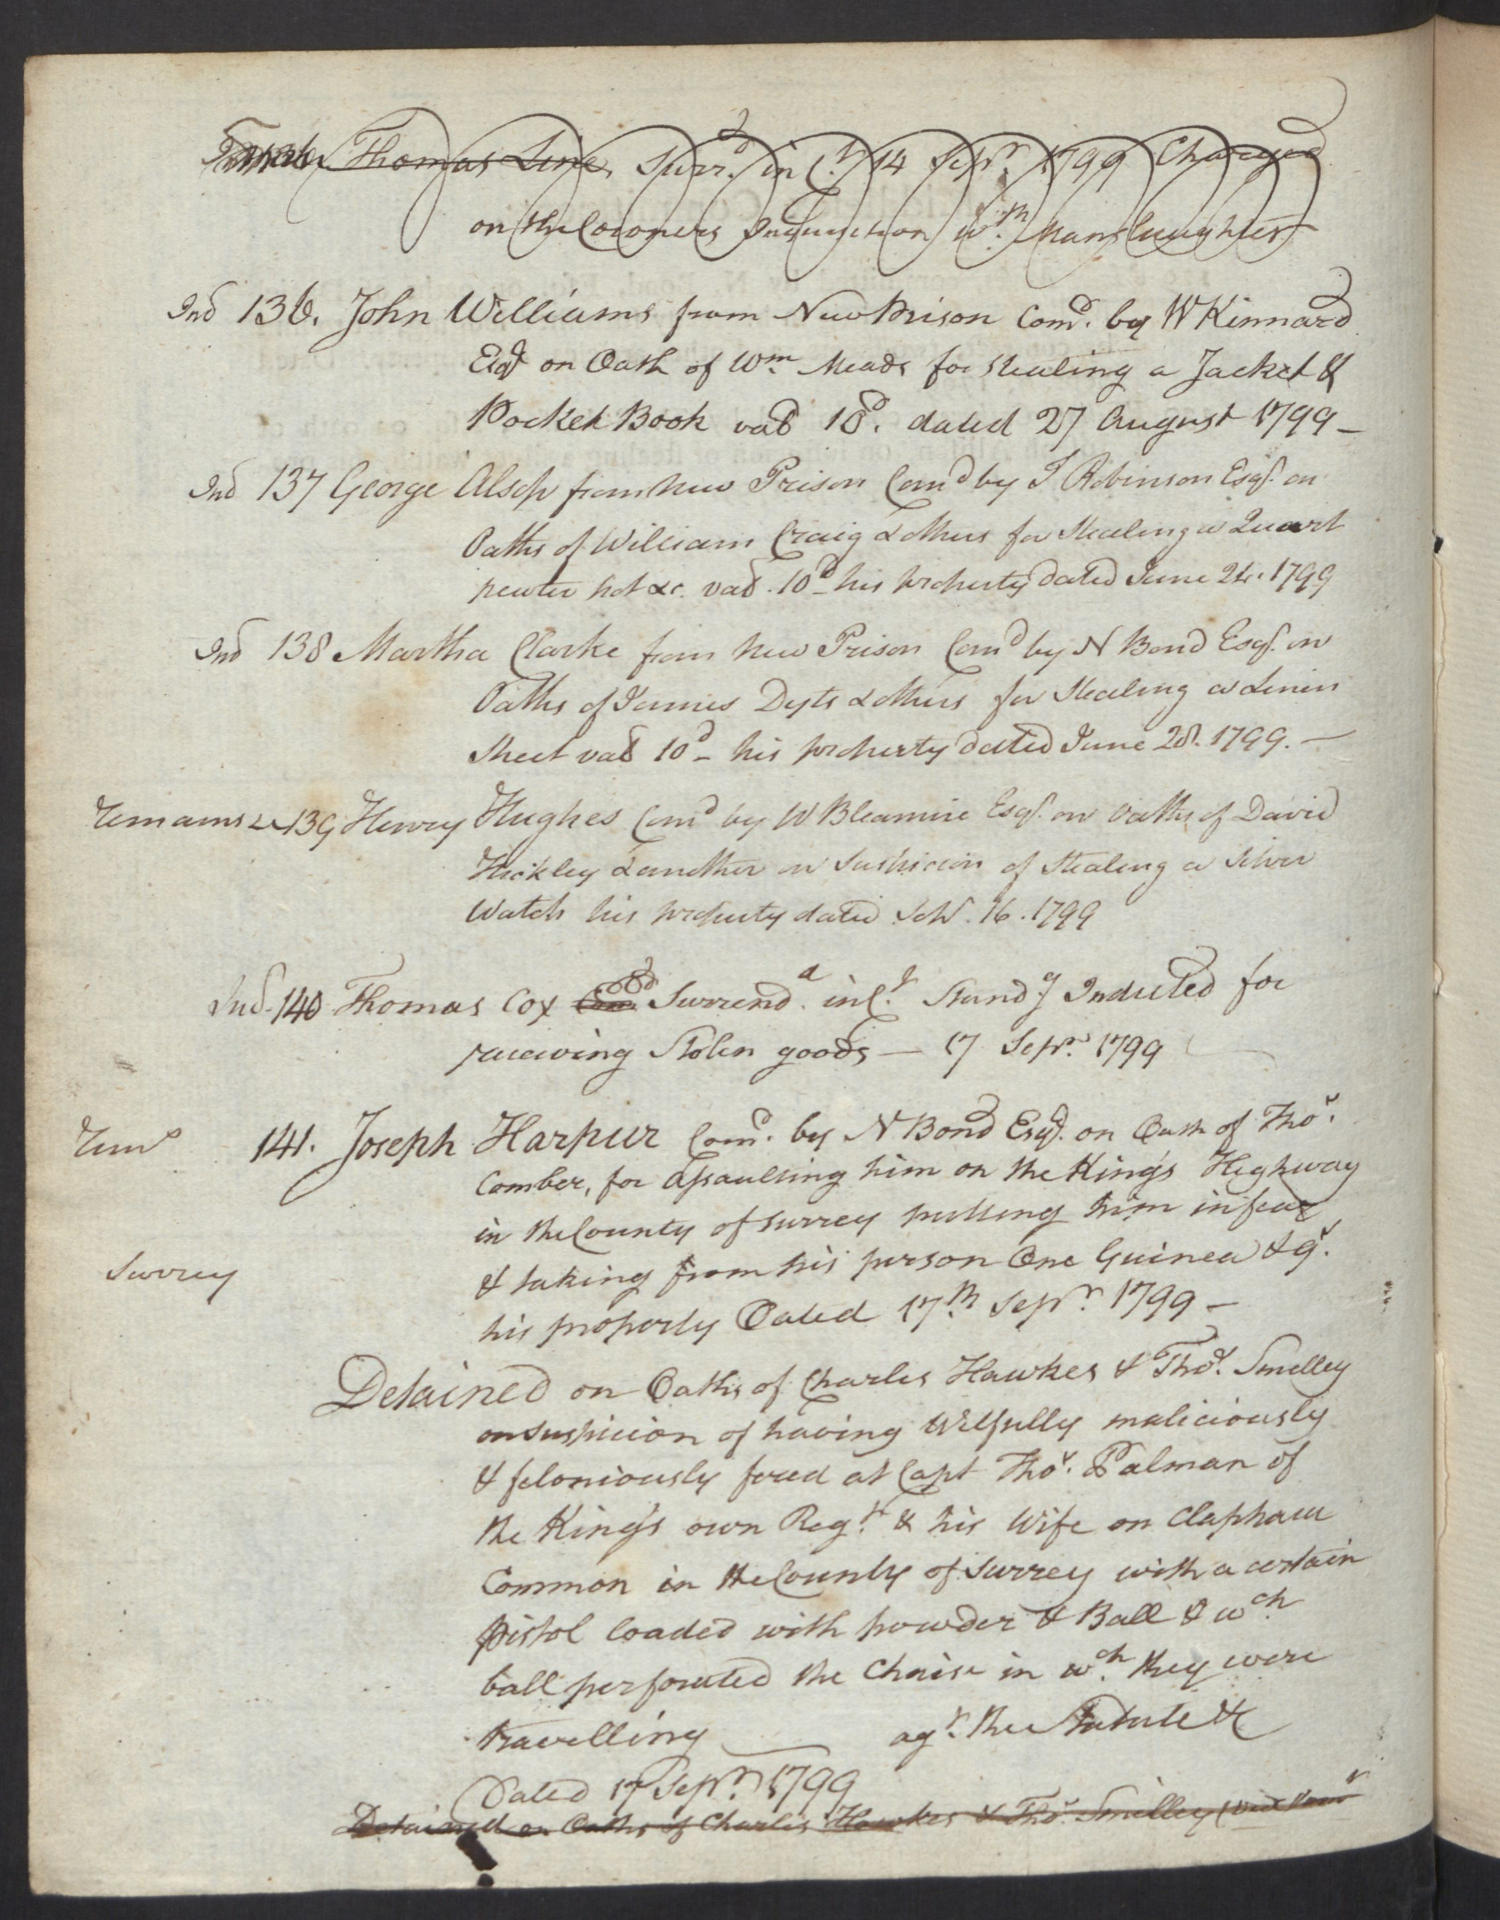 Thomas Line, Surr.d in C.t 14 Sepr. 1799 Charged
on the Coroners Inquisition wth. Manslaughter
Ind 136. John Williams from New Prison Comd. by W Kinnard
Esqr on Oath of Wm. Meads for stealing a Jacket &
Pocket Book val 18d. dated 27 August 1799 –
Ind 137 George Alsop from New Prison Comd by T Robinson Esqr. on
Oaths of William Craig & others for Stealing a Quart
pewter pot &c. val. 10d – his property dated June 24. 1799
Ind 138 Martha Clarke from New Prison Comd by N Bond Esqr. on
Oaths of James Dyts & others for Stealing a Linen
Sheet val 10d – his property dated June 28. 1799. —
Remains 139 Henry Hughes Comd by W Bleamire Esqr. on Oaths of David
Hickley & another on Suspicion of Stealing a Silver
Watch his property dated Sepr. 16. 1799
Ind. 140 Thomas Cox Com Surrend.d in C.t Standg Indicted for
receiving Stolen goods — 17 Sepr. 1799
Rems 141. Joseph Harpur Comd. by N Bond Esqr. on Oath of Thos.
Comber, for assaulting him on the King's Highway
in the County of Surrey putting him in fear
Surrey & taking from his person One Guinea &
his property Dated 17th. Sepr. 1799 –
Detained on Oaths of Charles Hawkes & Thos. Smelley
on suspicion of having Wilfully maliciously
& feloniously fired at Capt Thos. Palman of
the King's own Regt. & his Wife on Clapham
Common in the County of Surrey with a certain
pistol loaded with powder & Ball & wch
ball perforated the Chaise in wch. they were
travelling — agt. the Statute &c
Dated 17 Sepr. 1799
Detained on Oaths of Charles Hawkes & Thos. Smelley